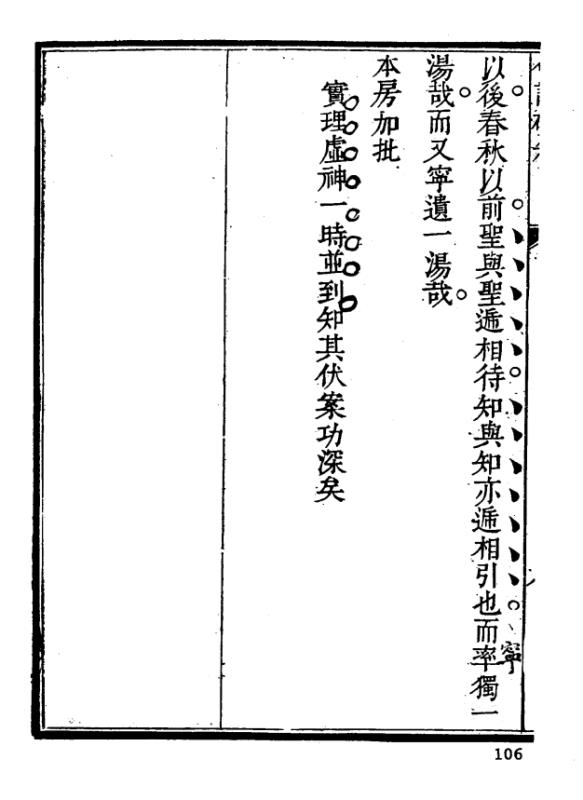 以後春秋以前聖與聖遞相待知與知亦遞相引也而率獨一
寧
湯哉而又寧遺一湯哉
本房加批
實理虛神一時並到知其伏案功深矣
106